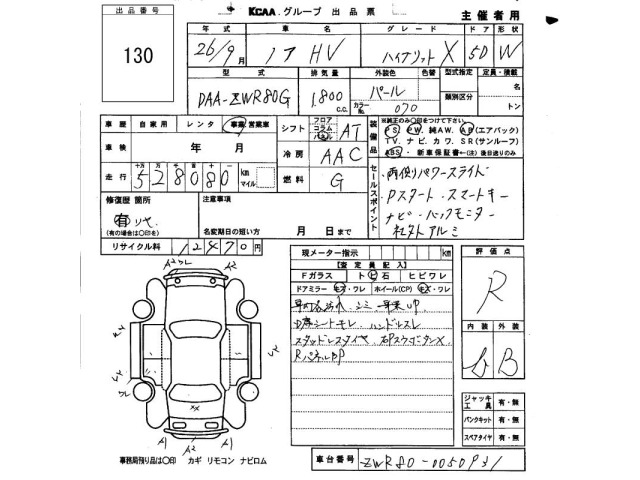 出品番号
130
KCAA グループ 出品票
主催者用
年式 車名 グレード ドア 形状
26/9月 ノア HV ハイブリット X 5D W
型式 排気量 外装色 色替 型式指定 定員・積載
DAA-ZWR80G 1,800 c.c. パール カラーNo. 070 類別区分 名 トン
車歴 自家用 レンタ 事業(営業)車
シフト フロア コラム AT
車検 年 月
冷房 AAC
走行 十万 万 528080 km マイル
燃料 G
装備品
※純正のみ○印をつけて下さい。
PS PW 純AW. AB(エアバック)
TV. ナビ. カワ. SR(サンルーフ)
ABS ・新車保証書←(注)後日送りのみ
セールスポイント
・両側パワースライド
Pスタート スマートキー
ナビ・バックモニター
社外アルミ
修復歴 箇所
有 リヤ
(有の場合は○印を)
注意事項
名変期日の短い方 月 日まで
リサイクル料 12470円
現メーター指示 km
【査定員記入】
Fガラス トビ石 ヒビワレ
ドアミラー キズ・ワレ ホイール(CP) キズ・ワレ
シミ
D席シートモレ ハンドルスレ
スタッドレスタイヤ
評価点
R
内装 外装
B
ジャッキ工具 有・無
パンクキット 有・無
スペアタイヤ 有・無
A2
A2
A2
XX
A1
A1
事務局預り品は○印 カギ リモコン ナビロム
車台番号 ZWR80-0050931